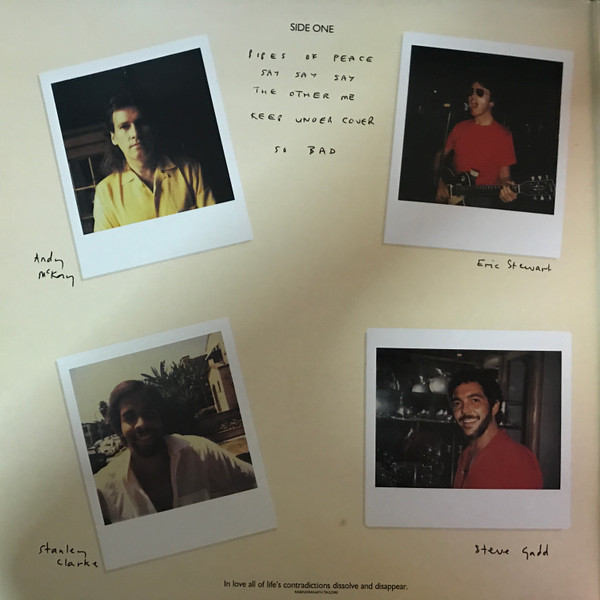 SIDE ONE
PIPES OF PEACE
SAY SAY SAY
THE OTHER ME
KEEP UNDER COVER
SO BAD
Andy
McKay
Eric Stewart
Stanley
Clarke
Steve Gadd
In love all of life's contradictions dissolve and disappear.
RABINDRANATH TAGORE